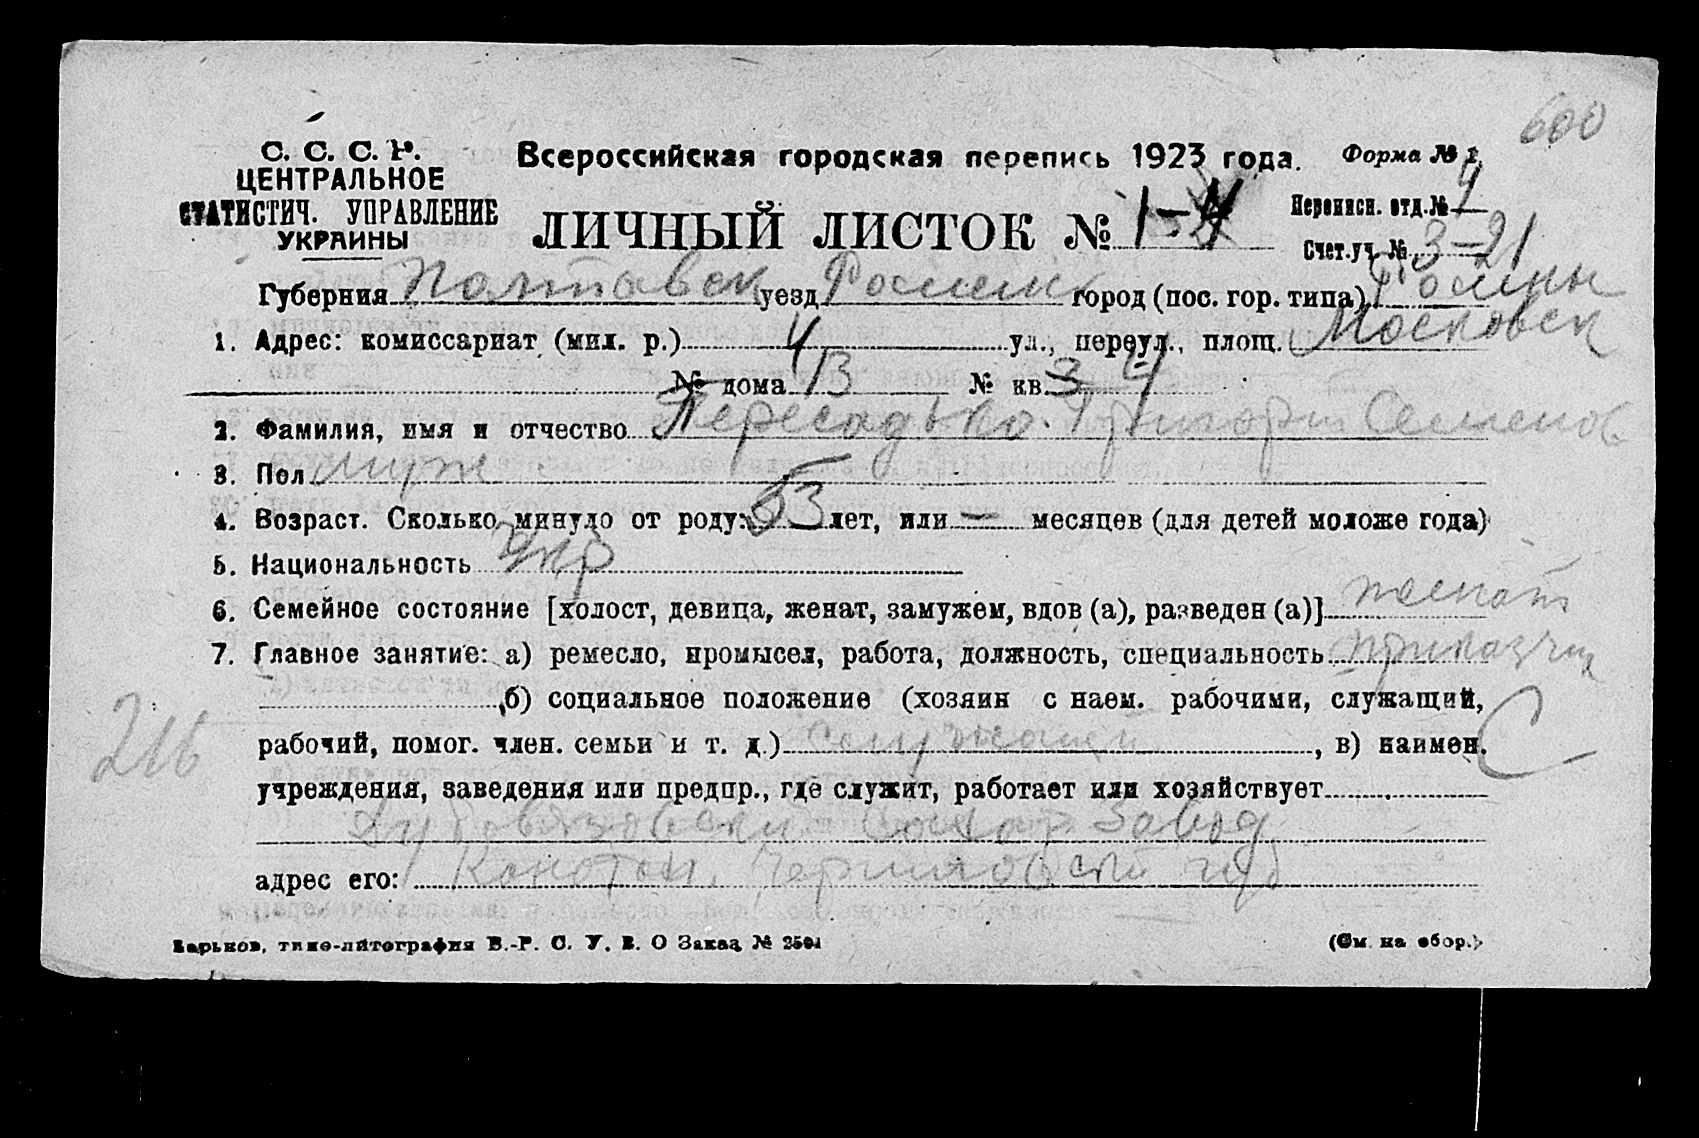 600
С. С. С. Р.
ЦЕНТРАЛЬНОЕ
СТАТИСТИЧ. УПРАВЛЕНИЕ
УКРАИНЫ
Всероссийская городская перепись 1923 года. Форма № 1.
ЛИЧНЫЙ ЛИСТОК № 1-4
Переписн. отд. № 4
Счет. уч. № 3-21
Губерния Полтавск уезд Роменск город (пос. гор. типа) Ромны
1. Адрес: комиссариат (мил. р.) 4 ул., переул., площ. Московск
№ дома 13 № кв. 3-4
2. Фамилия, имя и отчество Пересадько Григорий Семенов.
3. Пол муж
4. Возраст. Сколько минуло от роду: 53 лет, или — месяцев (для детей моложе года)
5. Национальность Укр
6. Семейное состояние [холост, девица, женат, замужем, вдов (а), разведен (а)] женат
7. Главное занятие: а) ремесло, промысел, работа, должность, специальность приказчик
б) социальное положение (хозяин с наем. рабочими, служащий,
рабочий, помог. член. семьи и т. д.) служащий, в) наимен. С
216
учреждения, заведения или предпр., где служит, работает или хозяйствует
Дубовязовский Сахар Завод
адрес его: Конотоп. Черниговской губ
Харьков, типо-литография В.-Р. С. У. В. О Заказ № 2504 (См. на обор.)